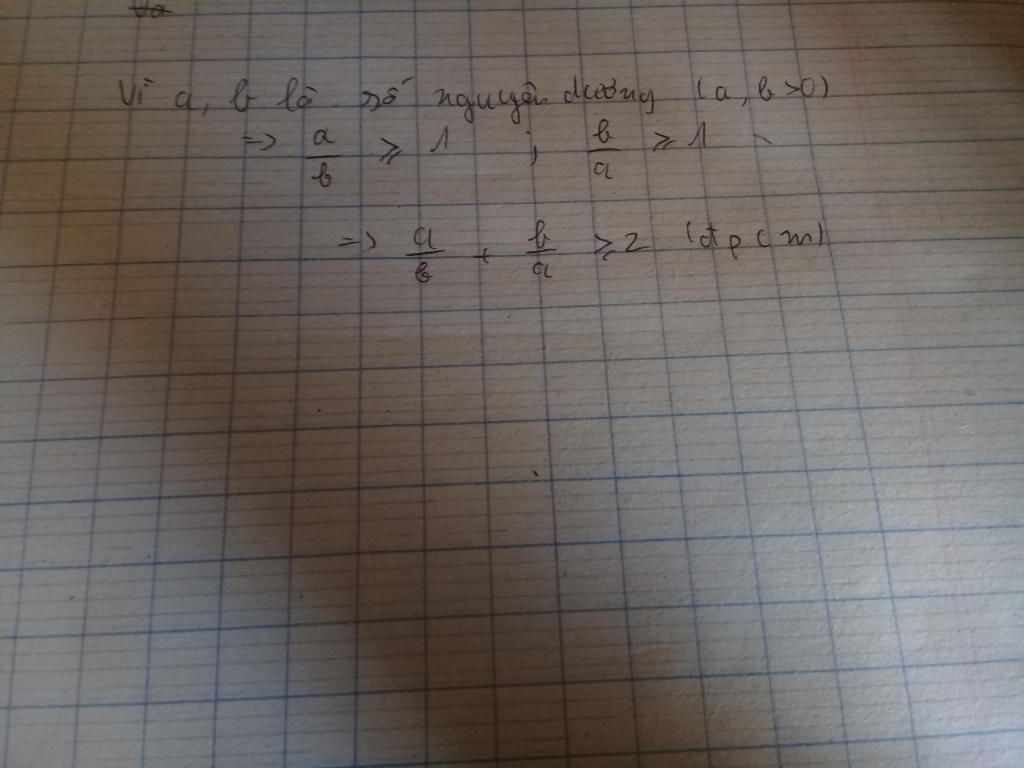 Vì a, b là số nguyên dương (a, b >0)
=> a/b ⩾ 1 ; b/a ⩾ 1
=> a/b + b/a ⩾ 2 (đpcm)